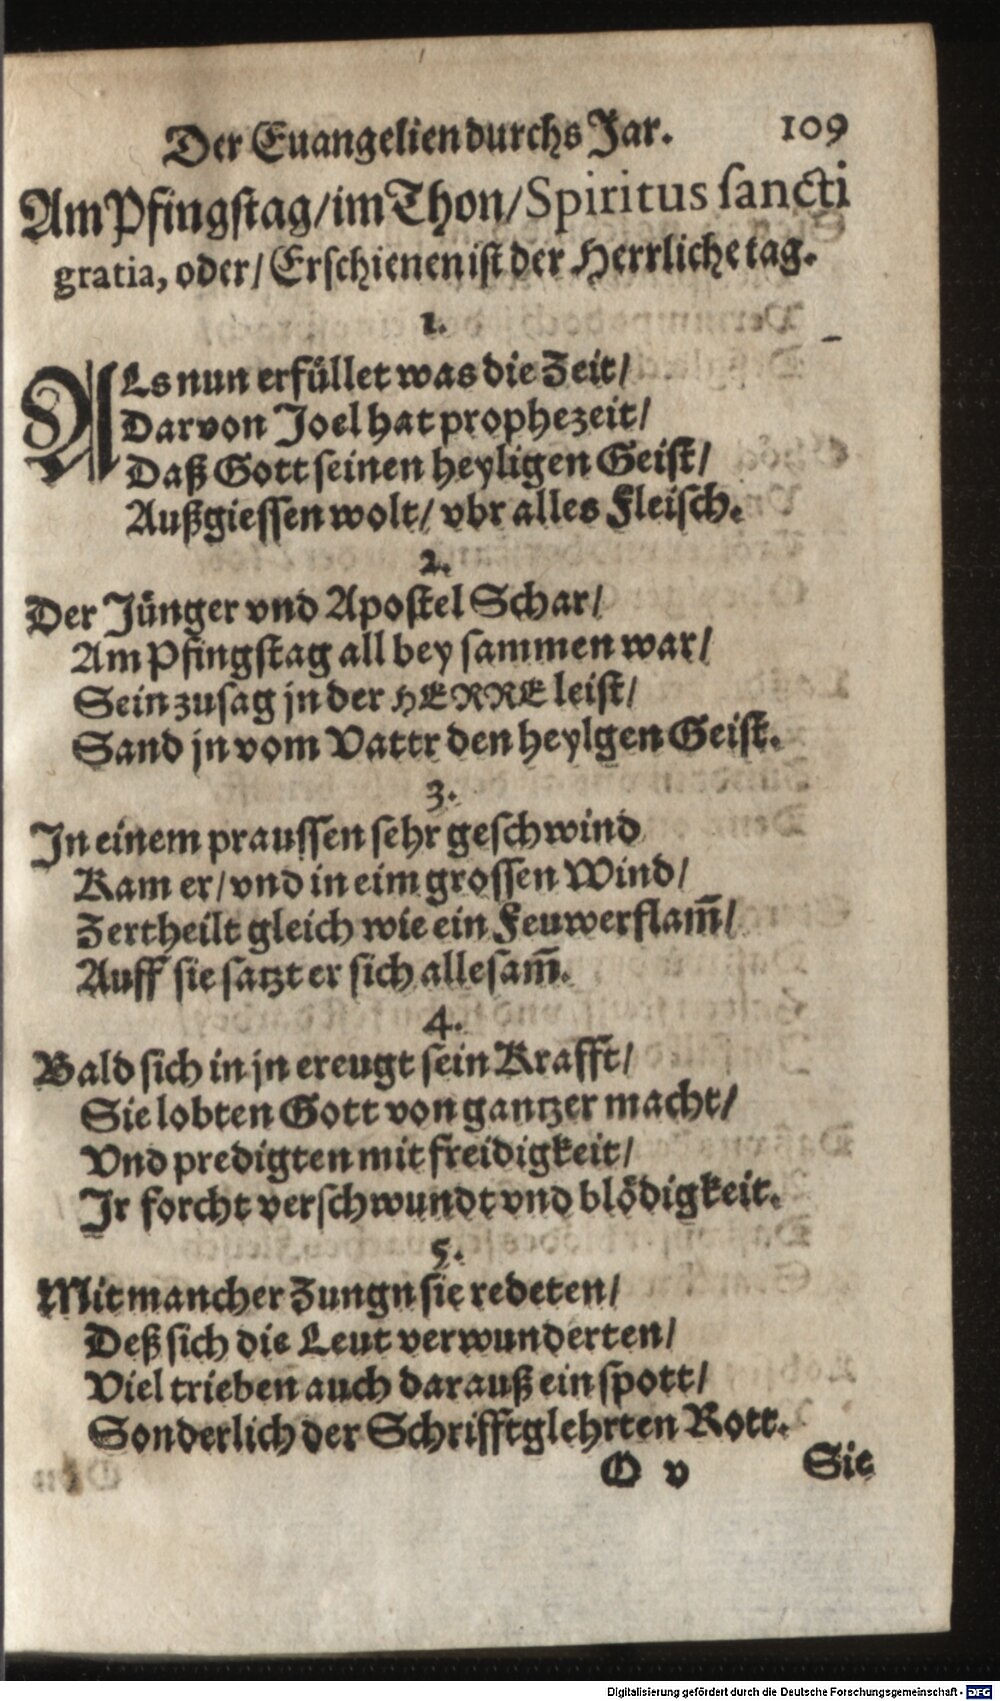 Der Euangelien durchs Jar. 109
Am Pfingstag/ im Thon/ Spiritus sancti
gratia, oder/ Erschienen ist der Herrliche tag.
1.
ALs nun erfüllet was die Zeit/
Darvon Joel hat prophezeit/
Daß Gott seinen heyligen Geist/
Außgiessen wolt/ vbr alles Fleisch.
2.
Der Jünger vnd Apostel Schar/
Am Pfingstag all bey sammen war/
Sein zusag jn der HERRE leist/
Sand jn vom Vattr den heylgen Geist.
3.
In einem praussen sehr geschwind
Kam er/ vnd in eim grossen Wind/
Zertheilt gleich wie ein Feuwerflam̃/
Auff sie satzt er sich allesam̃.
4.
Bald sich in jn ereugt sein Krafft/
Sie lobten Gott von gantzer macht/
Vnd predigten mit freidigkeit/
Jr forcht verschwundt vnd blödigkeit.
5.
Mit mancher Zungn sie redeten/
Deß sich die Leut verwunderten/
Viel trieben auch darauß ein spott/
Sonderlich der Schrifftglehrten Rott.
O v Sie
Digitalisierung gefördert durch die Deutsche Forschungsgemeinschaft - DFG